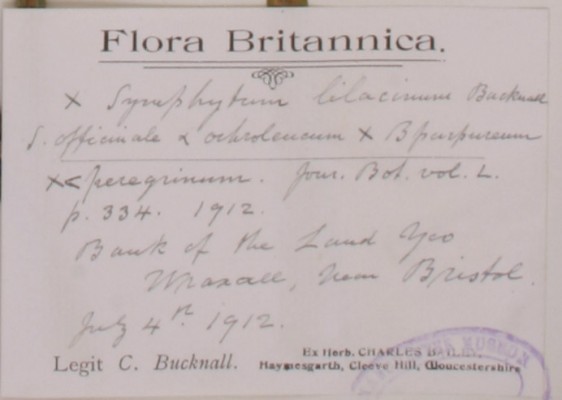 Flora Britannica.
× Symphytum lilacinum Bucknall
S. officinale α ochroleucum × β purpureum
×< peregrinum. Jour. Bot. vol. L.
p. 334. 1912.
Bank of the Land Yeo
Wraxall, near Bristol.
July 4th. 1912.
Legit C. Bucknall.
Ex Herb. CHARLES BAILEY,
Haymesgarth, Cleeve Hill, Gloucestershire
MUSEUM